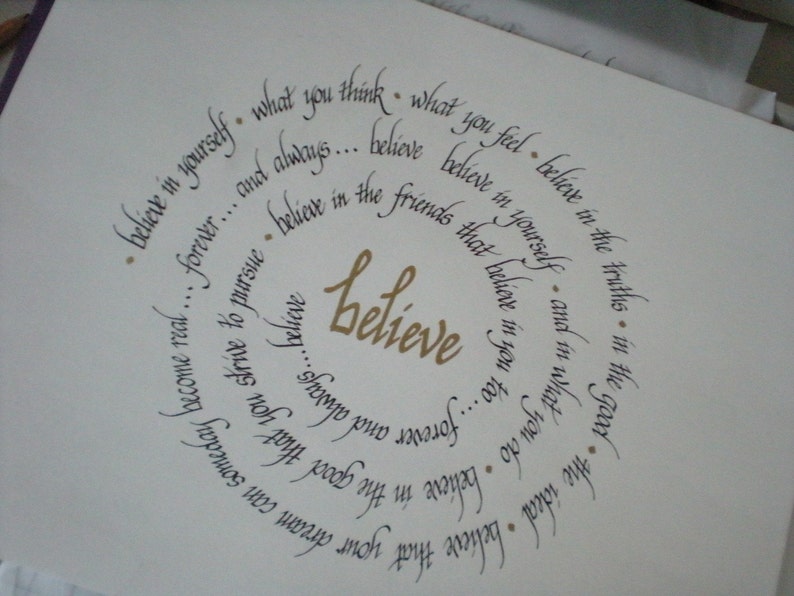 • believe in yourself • what you think • what you feel • believe in the truths • in the good • the ideal • believe that your dream can someday become real... forever... and always... believe believe in yourself • and in what you do • believe in the good that you strive to pursue • believe in the friends that believe in you too... forever and always...believe
believe